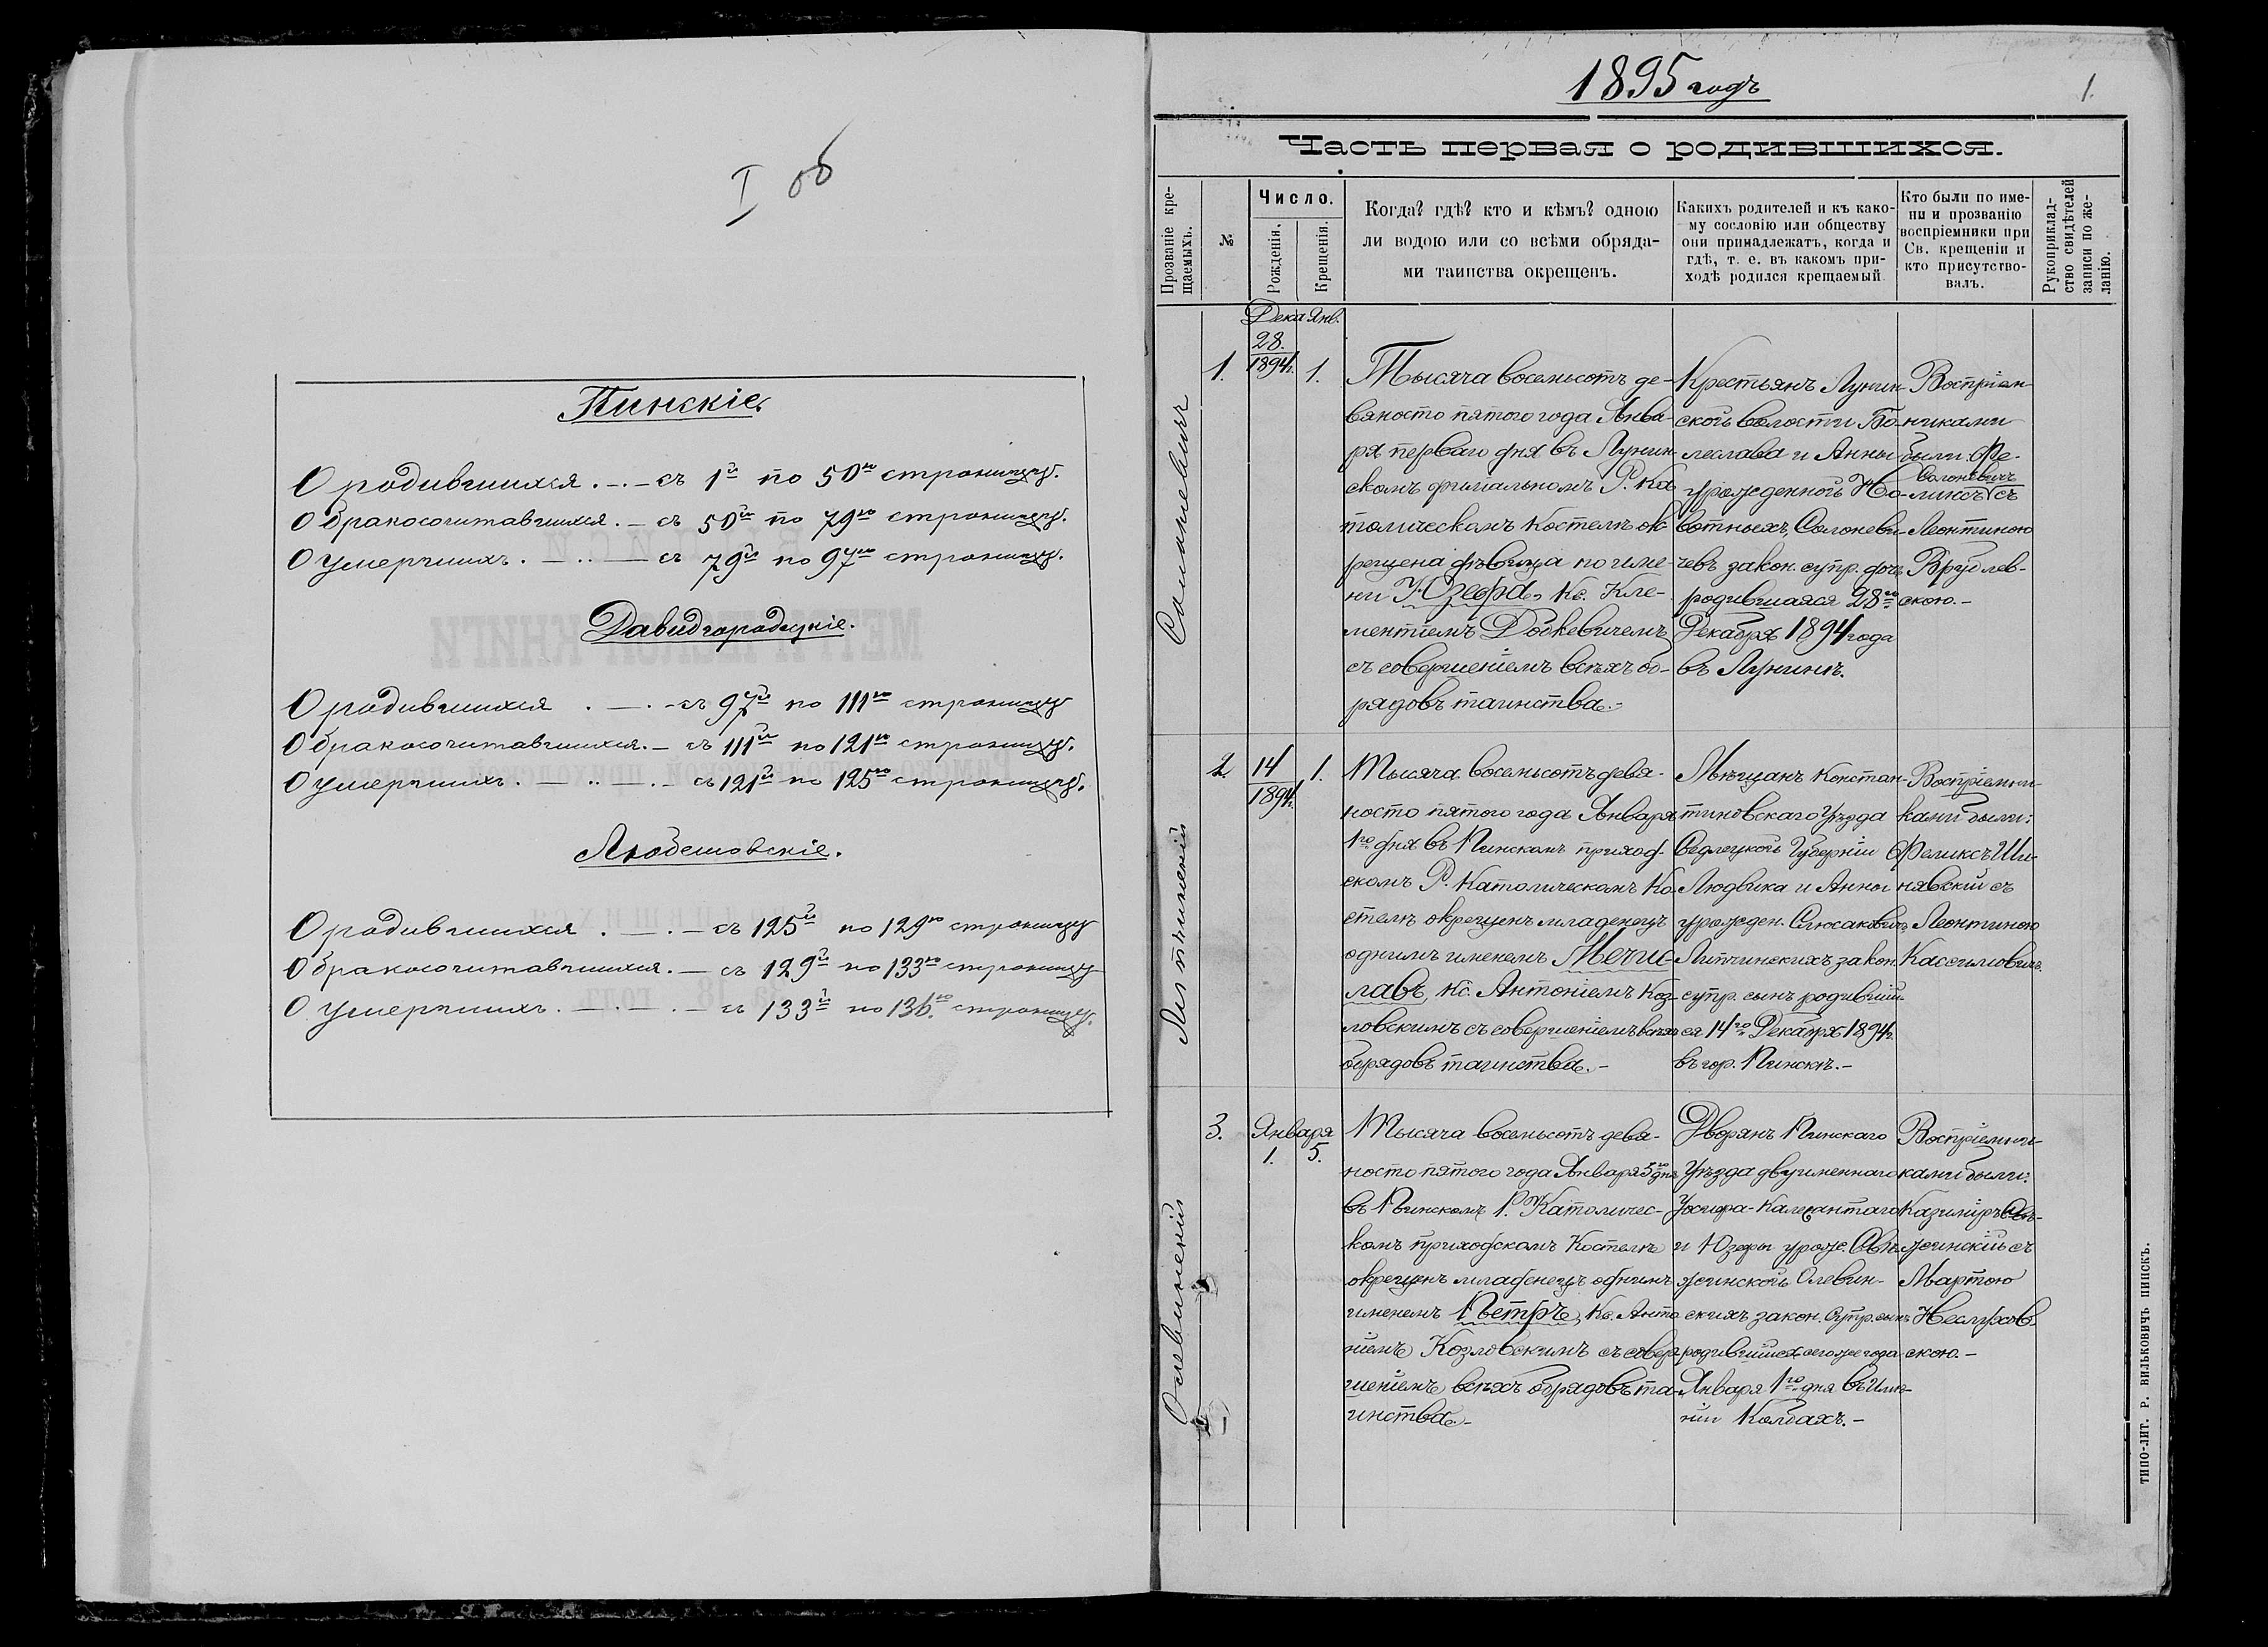 I об
Пинскіе.
О родившихся. — съ 1й по 50ю страницу.
О бракосочитавшихся. — съ 50й по 79ю страницу.
О умершихъ. — съ 79й по 97ю страницу.
Давидгородецкіе.
О родившихся. — съ 97й по 111ю страницу
О бракосочитавшихся. — съ 111й по 121ю страницу.
О умершихъ. — съ 121й по 125ю страницу.
Любешовскіе.
О родившихся. — съ 125й по 129ю страницу
О бракосочитавшихся. — съ 129й по 133ю страницу
О умершихъ. — съ 133й по 136ю страницу.
1895 годъ
1.
Часть первая о родившихся.
Прозваніе кре-
щаемыхъ.
№
Число.
Рожденія.
Крещенія.
Когда? гдѣ? кто и кѣмъ? одною
ли водою или со всѣми обряда-
ми таинства окрещенъ.
Какихъ родителей и къ како-
му сословію или обществу
они принадлежатъ, когда и
гдѣ, т. е. въ какомъ при-
ходѣ родился крещаемый.
Кто были по име-
ни и прозванію
воспріемники при
Св. крещеніи и
кто присутство-
валъ.
Рукоприклад-
ство свидѣтелей
записи по же-
ланію.
Солоневичъ
1.
Дека
28.
1894г.
Янв.
1.
Тысяча восемьсотъ де-
вяносто пятого года Янва-
ря перваго дня въ Лунин
скомъ филіальномъ Р. Ка
толическомъ Костелѣ ок
рещена дѣвица по име-
ни Юзефа, Кс. Кле-
ментіемъ Добкевичемъ
съ совершеніемъ всѣхъ об-
рядовъ таинства.-
Крестьянъ Лунин-
ской волости Бо-
леслава и Анны
урожденной
Солоневи-
чевъ закон. супр. дочь
родившаяся 28го
Декабря 1894 года
въ Лунинѣ.
Воспріем-
никами
были: Фе-
Солоневичъ
ликсъ съ
Леонтиною
Врублев-
скою.-
2.
14
1894г.
1.
Тысяча восемьсотъ девя-
носто пятого года Января
1го дня въ Пинскомъ приход-
скомъ Р. Католическомъ Ко-
стелѣ окрещенъ младенецъ
однимъ именемъ Мечи-
лавъ, Кс. Антоніемъ Коз-
ловскимъ съ совершеніемъ всѣхъ
обрядовъ таинства.-
Мѣщанъ Констан-
тиновскаго Уѣзда
Седлецкой Губерніи
Людвика и Анны
урожден.
закон.
супр. сынъ родивший-
ся 14го Декабря 1894г.
въ гор. Пинскѣ.-
Воспріемни-
ками были:
Феликсъ Ши-
нявскій съ
Леонтиною
3.
Января
1.
5.
Тысяча восемьсотъ девя-
носто пятого года Января 5го дня
въ Пинскомъ Р. Католичес-
комъ приходскомъ Костелѣ
окрещенъ младенецъ однимъ
именемъ Петръ, Кс. Анто
ніемъ Козловскимъ съ совер
шеніемъ всѣхъ обрядовъ та-
инства.-
Дворянъ Пинскаго
Уѣзда двуименнаго
и Юзефы урож.
Олевин-
скихъ закон. супр. сынъ
родившійся сего же года
Января 1го дня въ Имѣ-
ніи Колбахъ.-
Воспріемни-
ками были:
Казиміръ
съ
Мартою
скою.-
ТИПО-ЛИТ. Р. ВИЛЬКОВИЧЪ ПИНСКЪ.